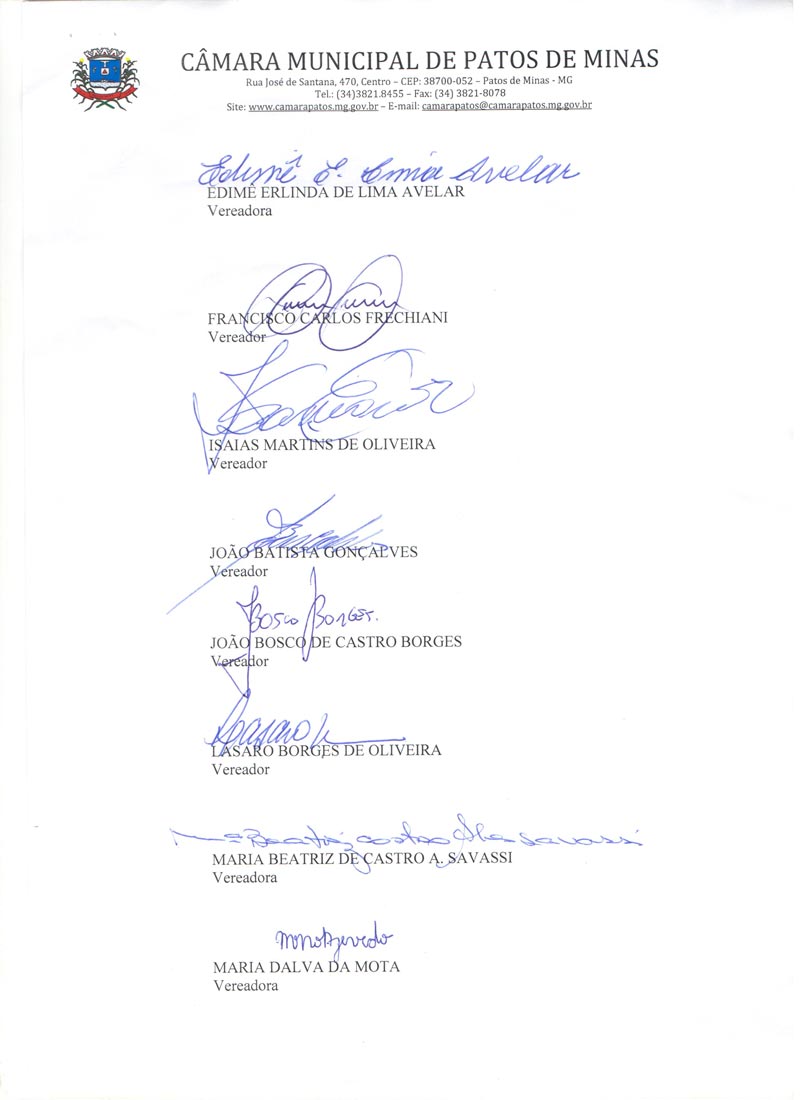 CÂMARA MUNICIPAL DE PATOS DE MINAS
Rua José de Santana, 470, Centro – CEP: 38700-052 – Patos de Minas - MG
Tel.: (34)3821.8455 – Fax: (34) 3821-8078
Site: www.camarapatos.mg.gov.br – E-mail: camarapatos@camarapatos.mg.gov.br
Edimê E. Avelar
EDIMÊ ERLINDA DE LIMA AVELAR
Vereadora
FRANCISCO CARLOS FRECHIANI
Vereador
ISAIAS MARTINS DE OLIVEIRA
Vereador
JOÃO BATISTA GONÇALVES
Vereador
Bosco Borges.
JOÃO BOSCO DE CASTRO BORGES
Vereador
LÁSARO BORGES DE OLIVEIRA
Vereador
Mª Beatriz Castro Savassi
MARIA BEATRIZ DE CASTRO A. SAVASSI
Vereadora
MARIA DALVA DA MOTA
Vereadora